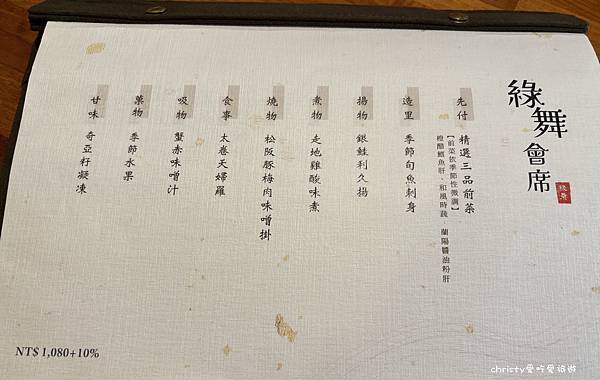 綠舞會席
綠舞
先付 精選三品前菜
【前菜依季節性微調】
橙醋鱈魚肝．和風時蔬．蘭陽醬油粉肝
造里 季節旬魚刺身
揚物 銀鮭利久揚
煮物 走地雞酸味煮
燒物 松阪豚梅肉味噌掛
食事 太卷天婦羅
吸物 蟹赤味噌汁
菓物 季節水果
甘味 奇亞籽凝凍
NT$ 1,080+10%
christy愛吃愛旅遊